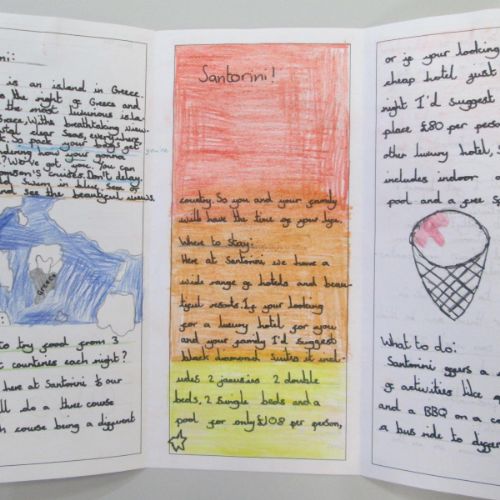 ni:
is an island in Greece.
to the right of Greece and
the most luxurious isla-
Greece. With the breathtaking view
crystal clear seas, everything
your boys get-
how your gonna
We've got you. You can
cruises. Don't delay
swim in blue, see a
and see the beautiful views.
Greece
to try food from 3
t countries each night?
here at Santorini is our
ll do a three course
h course being a different
Santorini!
country. So you and your family
will have the time of your life.
Where to Stay:
Here at Santorini we have a
wide range of hotels and beau-
tiful resorts. If your looking
for a luxury hotel for you
and your family I'd suggest
black diamond suites it incl-
udes 2 jacuzzies 2 double
beds, 2 single beds and a
pool for only £108 per person,
or if your looking
cheap hotel just
right I'd suggest
place £80 per perso
other luxury hotel, S
includes indoor a
pool and a free s
What to do:
Santorini offers a
of activities like q
and a BBQ on a c
a bus ride to differ